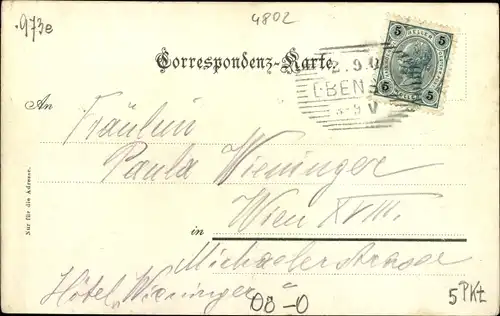 .973e
4802
Correspondenz-Karte.
2.9.0
EBENS
8-9 V
5 HELLER 5
5 HELLER 5
An
Fräulein
Paula Wieninger
in Wien XVIII.
Michaelerstrasse
Hôtel „Wieninger"
Nur für die Adresse.
08-0
5 PKt